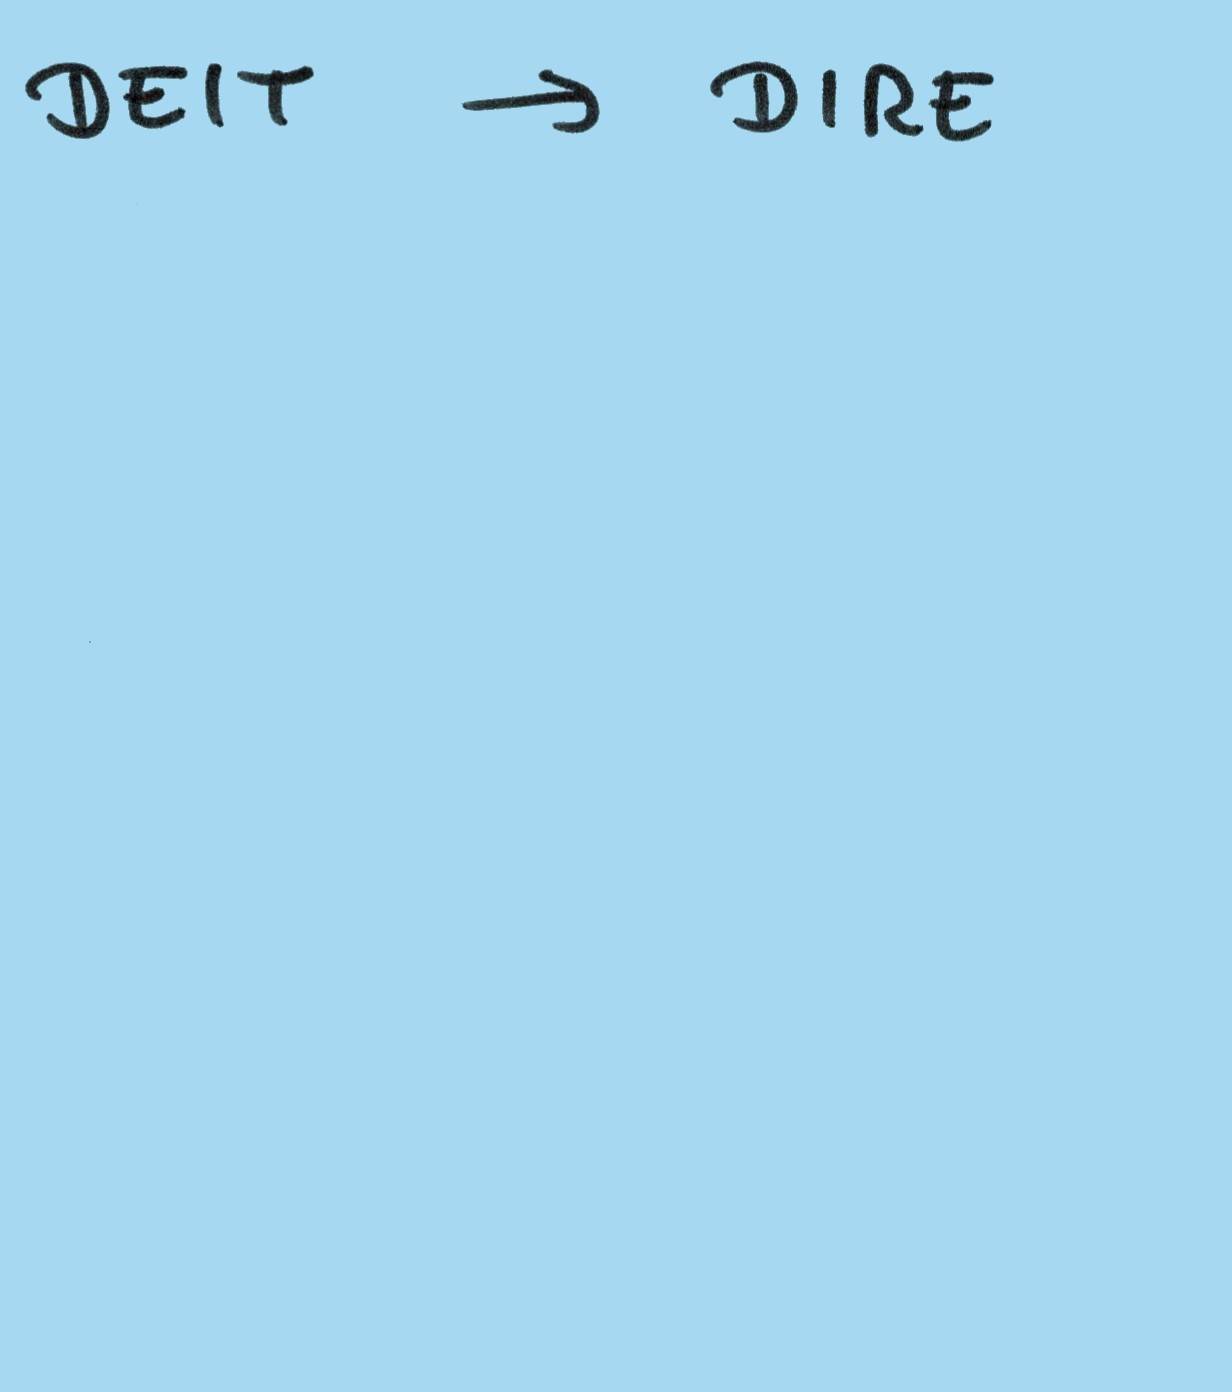 DEIT → DIRE